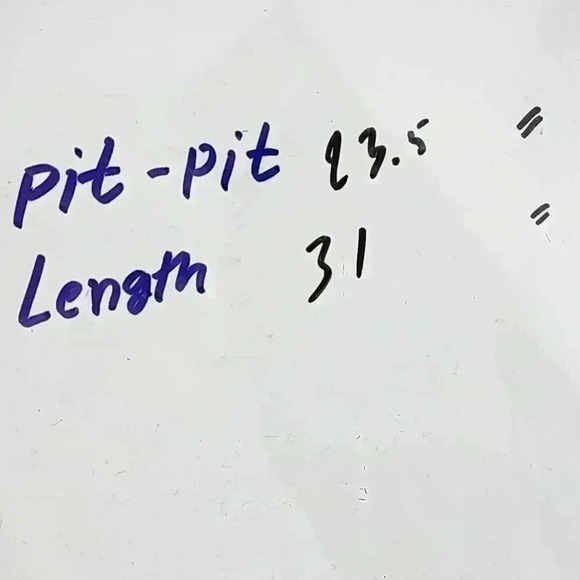 Pit-pit 23.5 "
Length 31 "